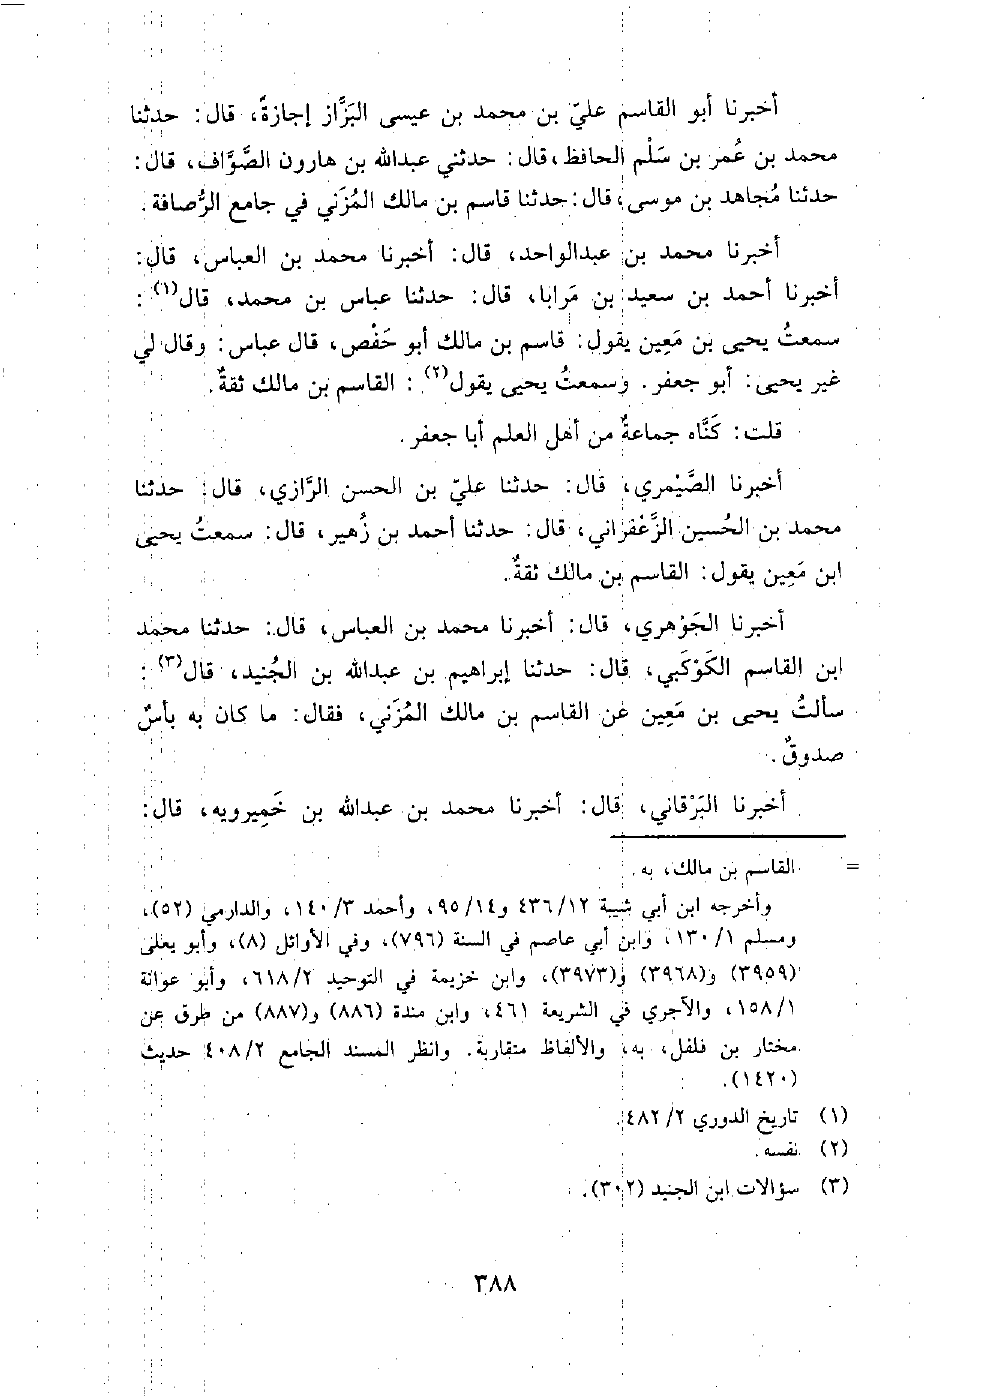 أخبرنا أبو القاسم عليّ بن محمد بن عيسى البَزَّاز إجازةً، قال: حدثنا
محمد بن عُمر بن سَلْم الحافظ، قال: حدثني عبدالله بن هارون الصَّوَّاف، قال:
حدثنا مُجاهد بن موسى، قال: حدثنا قاسم بن مالك المُزَني في جامع الرُّصافة.
أخبرنا محمد بن عبدالواحد، قال: أخبرنا محمد بن العباس، قال:
أخبرنا أحمد بن سعيد بن مَرابا، قال: حدثنا عباس بن محمد، قال(١):
سمعتُ يحيى بن مَعِين يقول: قاسم بن مالك أبو حَفْص، قال عباس: وقال لي
غير يحيى: أبو جعفر. وسمعتُ يحيى يقول(٢): القاسم بن مالك ثقةٌ.
قلت: كَنَّاه جماعةٌ من أهل العلم أبا جعفر.
أخبرنا الصَّيْمري، قال: حدثنا عليّ بن الحسن الرَّازي، قال: حدثنا
محمد بن الحُسين الزَّعْفراني، قال: حدثنا أحمد بن زُهير، قال: سمعتُ يحيى
ابن مَعِين يقول: القاسم بن مالك ثقةٌ.
أخبرنا الجَوْهري، قال: أخبرنا محمد بن العباس، قال: حدثنا محمد
ابن القاسم الكَوْكَبي، قال: حدثنا إبراهيم بن عبدالله بن الجُنيد، قال(٣):
سألتُ يحيى بن مَعِين عن القاسم بن مالك المُزَني، فقال: ما كان به بأسٌ
صدوقٌ.
أخبرنا البَرْقاني، قال: أخبرنا محمد بن عبدالله بن خَمِيرويه، قال:
= القاسم بن مالك، به.
وأخرجه ابن أبي شيبة ١٢/ ٤٣٦ و١٤/ ٩٥، وأحمد ٣/ ١٤٠، والدارمي (٥٢)،
ومسلم ١/ ١٣٠، وابن أبي عاصم في السنة (٧٩٦)، وفي الأوائل (٨)، وأبو يعلى
(٣٩٥٩) و(٣٩٦٨) و(٣٩٧٣)، وابن خزيمة في التوحيد ٢/ ٦١٨، وأبو عوانة
١/ ١٥٨، والآجري في الشريعة ٤٦١، وابن مندة (٨٨٦) و(٨٨٧) من طرق عن
مختار بن فلفل، به، والألفاظ متقاربة. وانظر المسند الجامع ٢/ ٤٠٨ حديث
(١٤٢٠).
(١) تاريخ الدوري ٢/ ٤٨٢.
(٢) نفسه.
(٣) سؤالات ابن الجنيد (٣٠٢).
٣٨٨